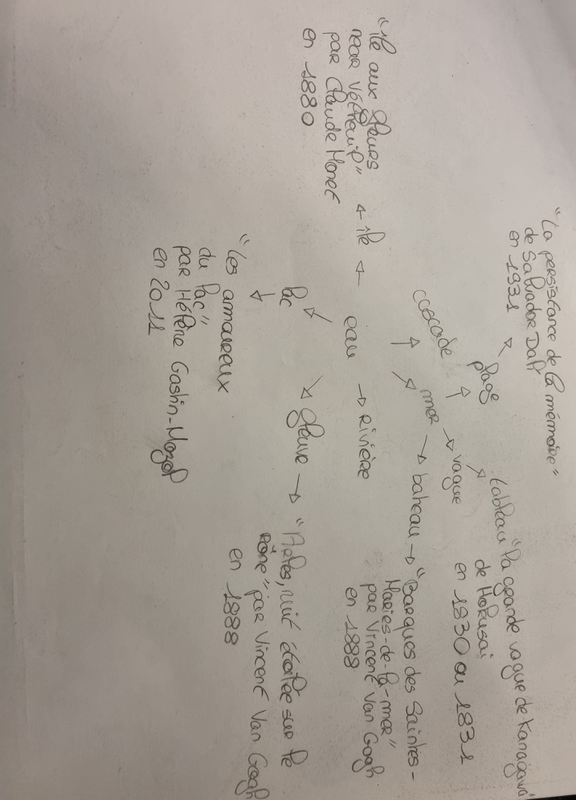 "La persistance de la mémoire"
de Salvador Dalí
en 1931
plage
tableau "la grande vague de Kanagawa"
de Hokusai
en 1830 ou 1831
vague
cascade
mer → bateau → "Barques des Saintes-
Maries-de-la-mer"
par Vincent Van Gogh
en 1888
"île aux fleurs
near Vétheuil"
par Claude Monet
en 1880
← île ← eau → rivière
lac
fleuve → "Arles, nuit étoilée sur le
Rône" par Vincent Van Gogh
en 1888
"Les amoureux
du lac"
par Hélène
en 2011